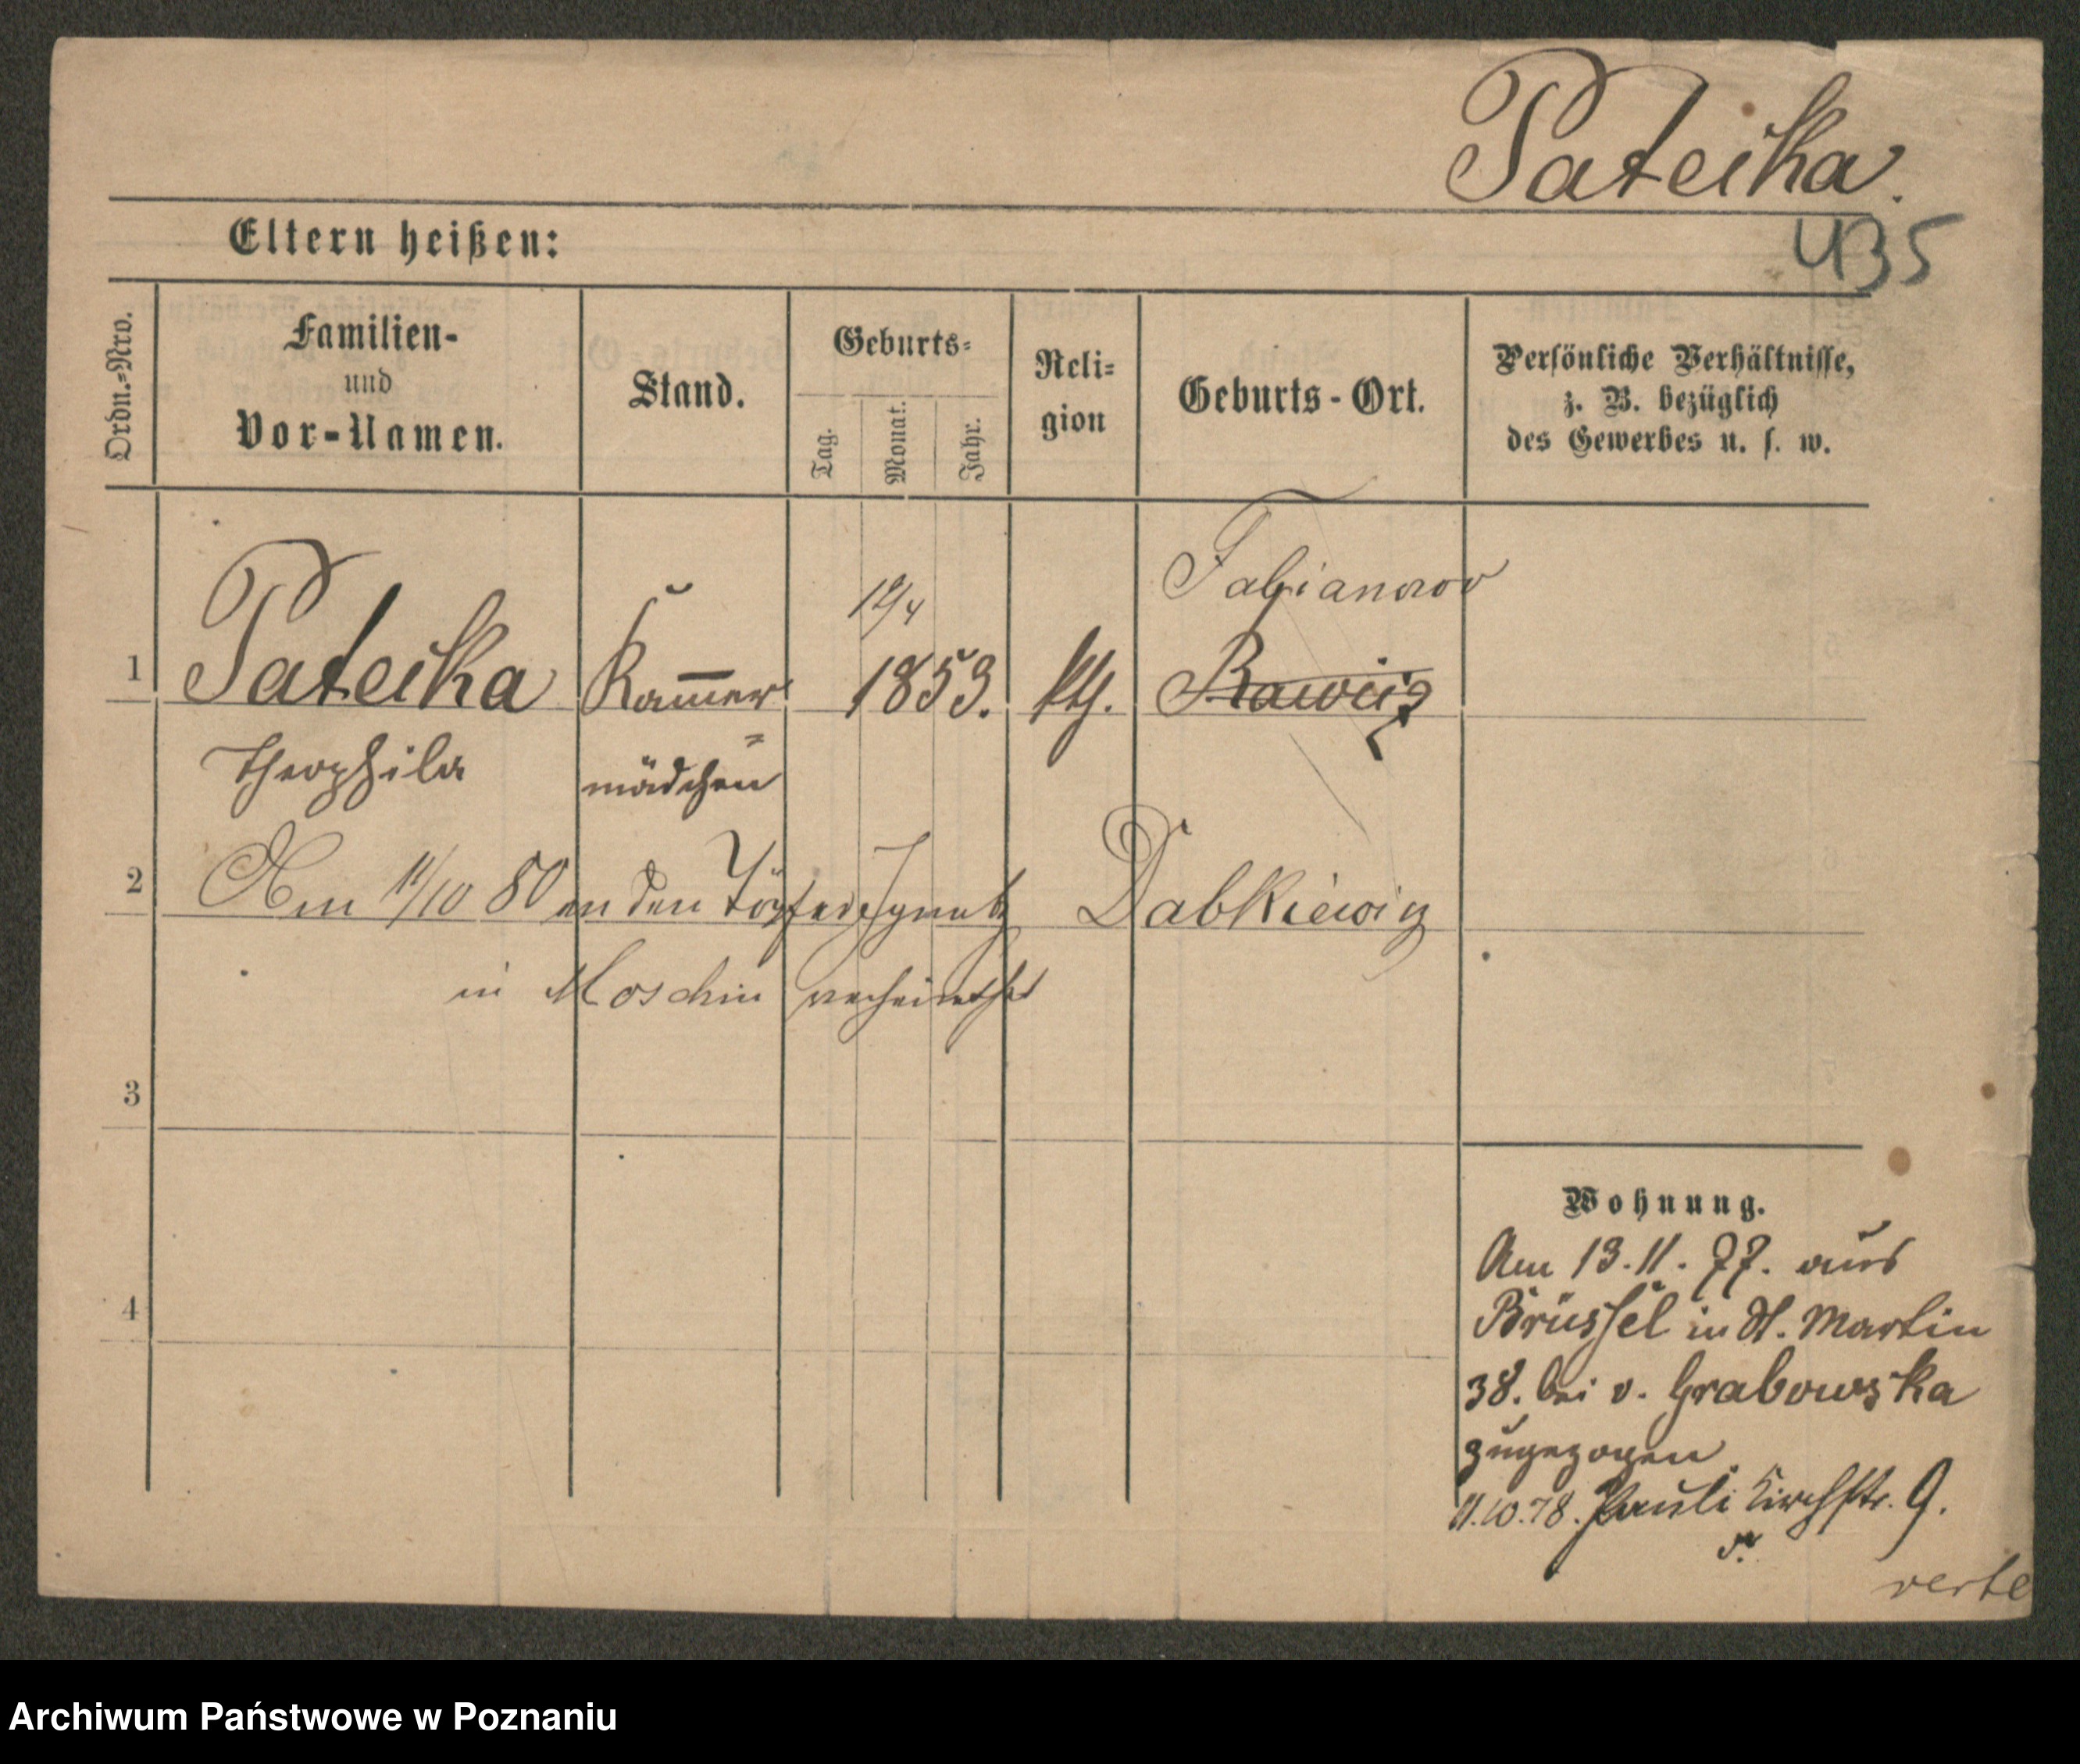 Pateika.
435
Eltern heißen:
Ordn.-Nro.
Familien-
und
Vor-Namen.
Stand.
Geburts-
Tag.
Monat.
Jahr.
Reli-
gion
Geburts-Ort.
Persönliche Verhältnisse,
z. B. bezüglich
des Gewerbes u. s. w.
Fabianowo
1
Pateika
Kammer
1853.
kth.
Rawicz
Theophila
=mädchen
2
Am 11/10 80 an den Töpfer Ignatz Dabkiewicz
in Moschin verheirathet
3
4
Wohnung.
Am 13.11.77. aus
Brüssel in St. Martin
38. bei v. Grabowska
zugezogen
11.10.78. Pauli Kirchstr. 9.
verte
Archiwum Państwowe w Poznaniu